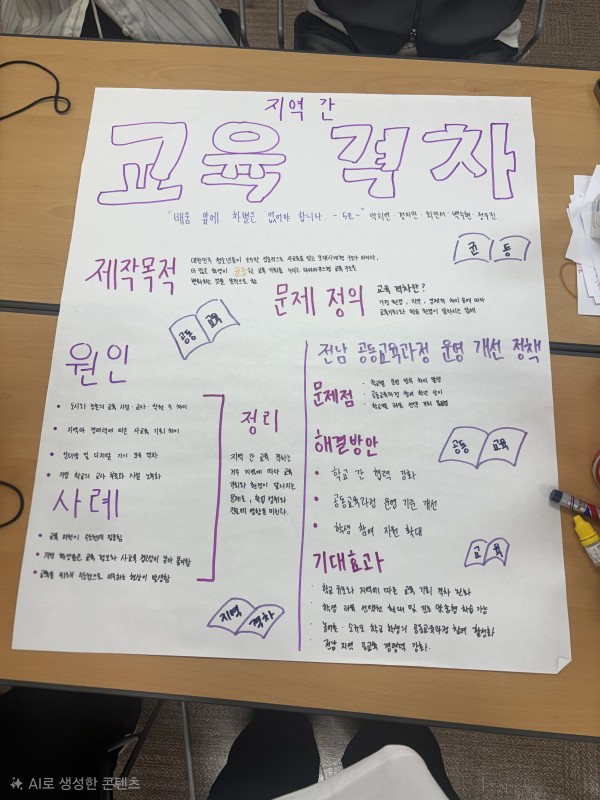 지역 간
교육 격차
"배움 앞에 차별은 없어야 합니다. - 5조 -"
균등
제작목적
대한민국 청소년들이
변화하는 것을 목적으로 함
문제 정의
교육 격차란?
가정 환경, 지역, 경제적 차이 등에 따라
교육기회와 학습 환경이 달라지는 문제
공동 교육
원인
• 도시와 농촌의 교육 시설·교사·학원 수 차이
• 지역의 경제력에 따른 사교육 기회 차이
• 인터넷 및 디지털 기기 보유 격차
• 지방 학교의 교사 부족과 시설 노후화
사례
• 교육 자원이 수도권에 집중됨
• 지방 학생들은 교육 정보와 사교육
• 교육을 위해 수도권으로 이주하는 현상이 발생함
정리
지역 간 교육 격차는
거주 지역에 따라 교육
기회와 환경이 달라지는
문제로, 학업 성취와
진로에 영향을 미친다.
지역 격차
전남 공동교육과정 운영 개선 정책
문제점
• 학교별 운영 방식 차이 발생
• 공동교육과정 참여 학생
• 학교별 과목 선택 기회 불균형
해결방안
• 학교 간 협력 강화
• 공동교육과정 운영 기준 개선
• 학생 참여 지원 확대
공동 교육
기대효과
교육
· 학교 규모와 지역에 따른 교육 기회 격차 완화
· 학생 과목 선택권 확대 및 진로 맞춤형 학습 가능
· 농어촌·소규모 학교 학생의 공동교육과정 참여 활성화
· 전남 지역 공교육 경쟁력 강화.
AI로 생성한 콘텐츠